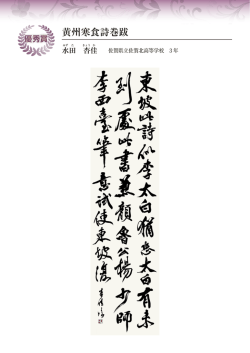 優秀賞
黄州寒食詩巻跋
永田 杏佳 佐賀県立佐賀北高等学校 3年
東坡此詩似李太白猶恐太白有未
到處此書兼顔魯公楊少師
李西臺筆意試使東坡復